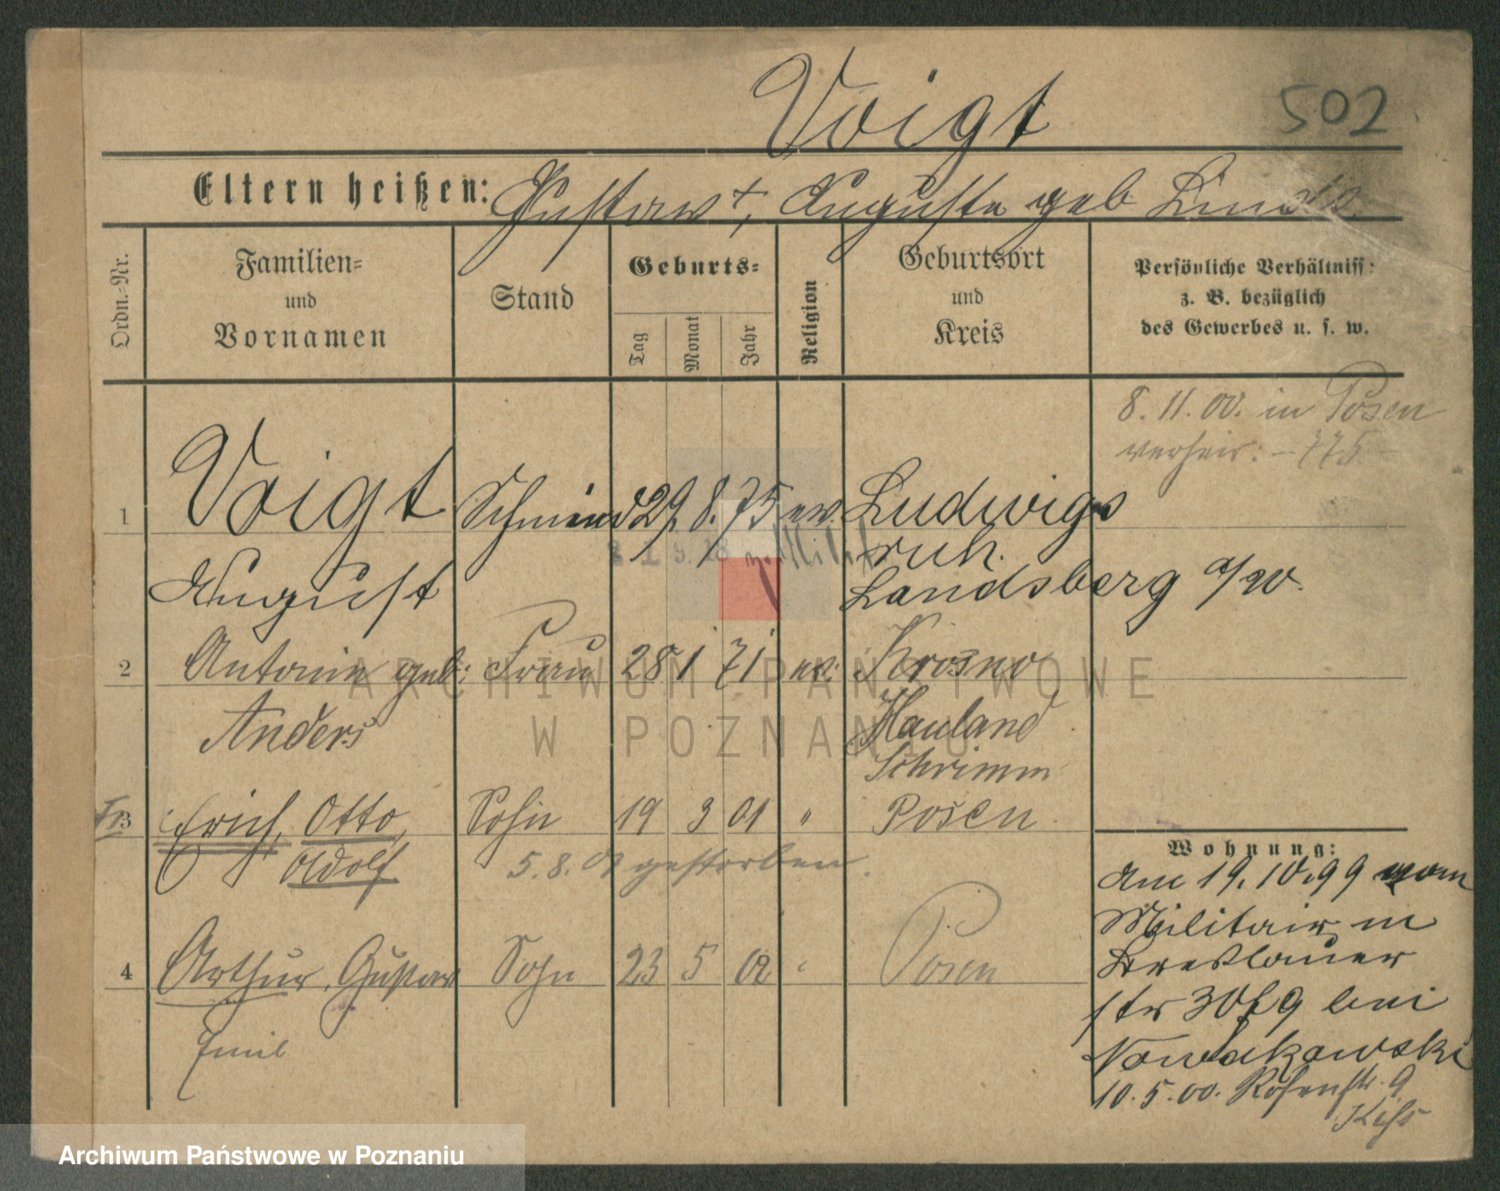 Voigt
502
Eltern heißen: Gustav +, Auguste geb Linde
Ordn.=Nr.
Familien=
und
Vornamen
Stand
Geburts=
Tag
Monat
Jahr
Religion
Geburtsort
und
Kreis
Persönliche Verhältniss:
z. B. bezüglich
des Gewerbes u. s. w.
8. 11. 00. in Posen
verheir: - 775 -
1 Voigt Schmied 29. 8. 75 ev. Ludwigs
ruh.
August Landsberg a/W.
2 Antonie geb: Frau 28 1 71 ev: Krosno
Anders Hauland
Schrimm
3 Erich, Otto, Sohn 19 3 01 " Posen
Adolf 5. 8. 01 gestorben.
4 Arthur, Gustav Sohn 23 5 02 " Posen
Emil
Wohnung:
Am 19. 10. 99 vom
Militair in
Breslauer
str 30/9 bei
Nowakowski
10. 5. 00. Rosenstr. 9
ARCHIWUM PAŃSTWOWE
W POZNANIU
Archiwum Państwowe w Poznaniu